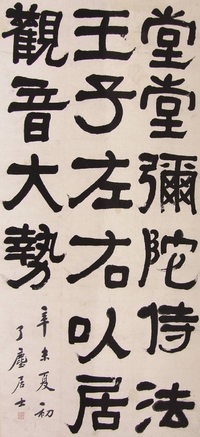 堂堂彌陀侍法
王子左右以居
觀音大勢
辛未夏初
了塵居士